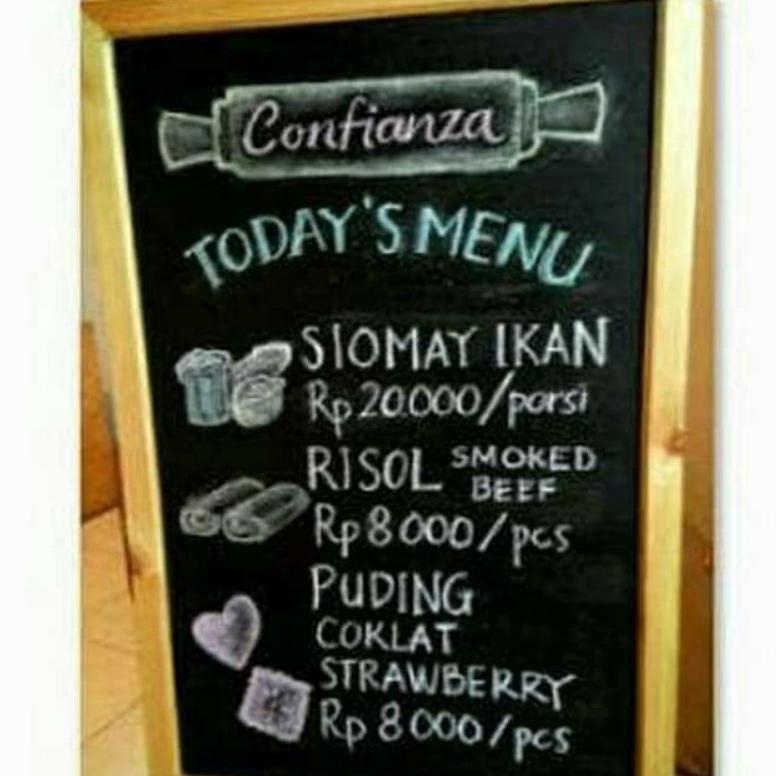 Confianza
TODAY'S MENU
SIOMAY IKAN
Rp 20.000/porsi
RISOL SMOKED
BEEF
Rp 8000/pcs
PUDING
COKLAT
STRAWBERRY
Rp 8000/pcs